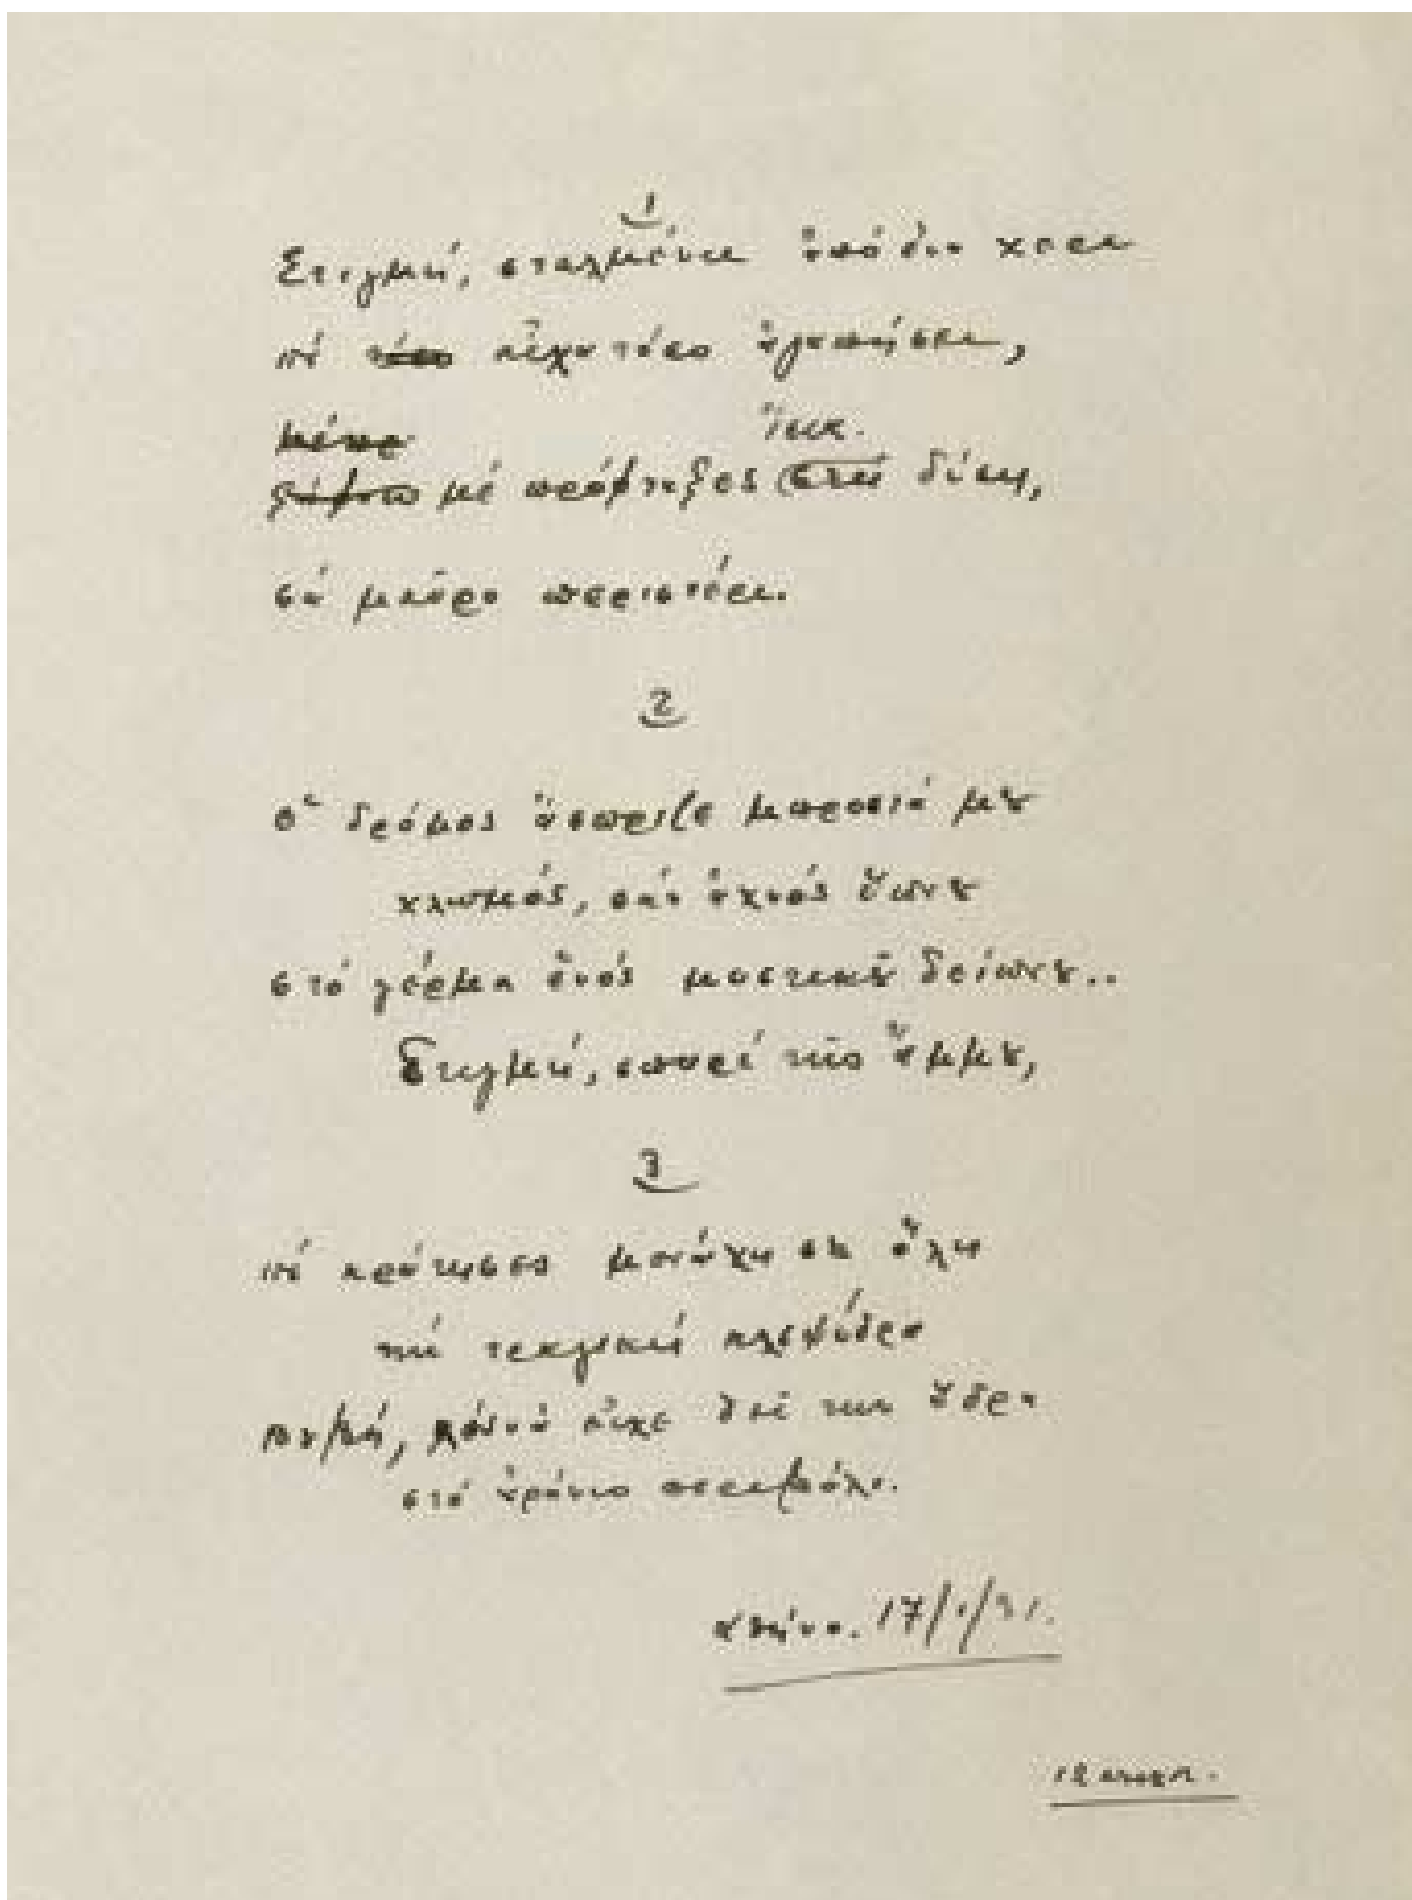 1
Στιγμή, σταλμένη ἀπό ἕνα χέρι
πȣ́ τόσο εἶχα τόσο ἀγαπήσει,
μέ πρόφταξες στή δύση,
σά μαῦρο περιστέρι.
2
Ὁ δρόμος ἄσπριζε μπροστά μȣ
χλωμός, σάν ἀχνός ὕπνȣ
στό γέρμα ἑνός μυστικȣ͂ δείπνȣ..
Στιγμή, σπυρί τῆς ἄμμȣ,
3
πȣ́ κράτησες μονάχη σȣ ὅλη
τή τραγική κλεψύδρα
βȣβή, σά νά εἶχε δεῖ τήν Ὕδρα
στό ȣ̓ράνιο περιβόλι.
Ἀθήνα. 17/1/31.